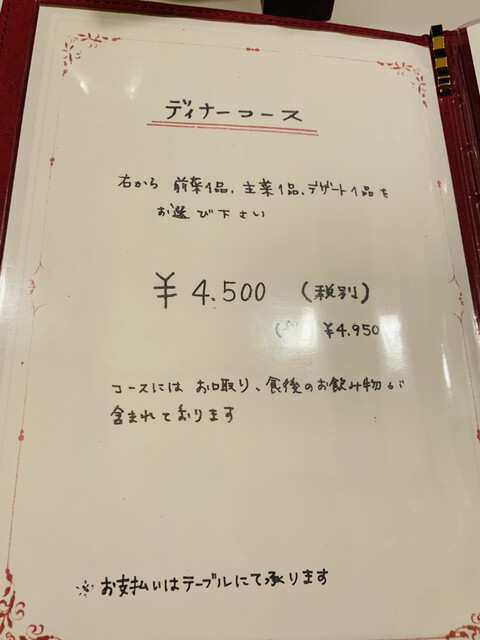 ディナーコース
右から 前菜1品、主菜1品、デザート1品を
お選び下さい
¥4.500 (税別)
¥4.950
コースには お口取り、食後のお飲み物が
含まれております
※お支払いはテーブルにて承ります